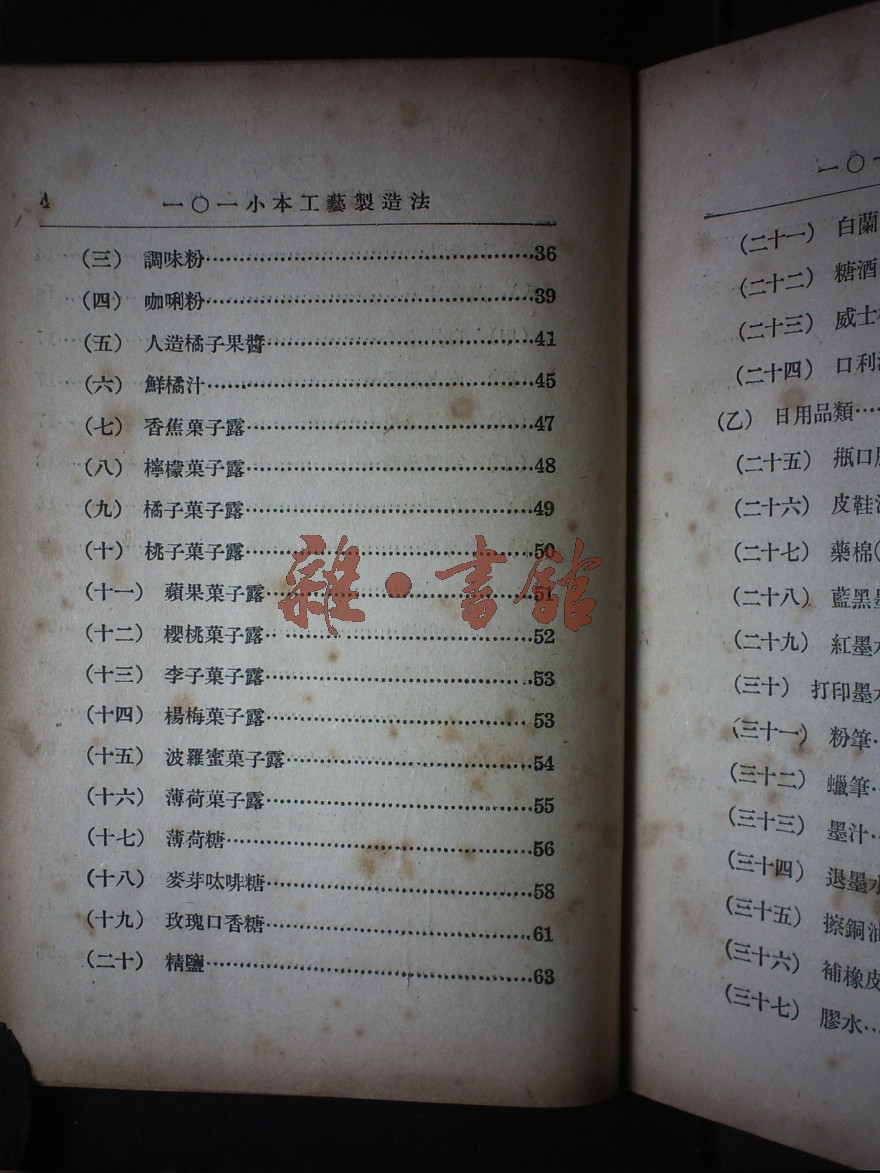 4 一〇一小本工藝製造法
(三) 調味粉……36
(四) 咖唎粉……39
(五) 人造橘子果醬……41
(六) 鮮橘汁……45
(七) 香蕉菓子露……47
(八) 檸檬菓子露……48
(九) 橘子菓子露……49
(十) 桃子菓子露……50
(十一) 蘋果菓子露……51
(十二) 櫻桃菓子露……52
(十三) 李子菓子露……53
(十四) 楊梅菓子露……53
(十五) 波羅蜜菓子露……54
(十六) 薄荷菓子露……55
(十七) 薄荷糖……56
(十八) 麥芽呔啡糖……58
(十九) 玫瑰口香糖……61
(二十) 精鹽……63
雜·書館
一〇一
(二十一) 白蘭
(二十二) 糖酒
(二十三) 威士
(二十四) 口利
(乙) 日用品類……
(二十五) 瓶口
(二十六) 皮鞋
(二十七) 藥棉(
(二十八) 藍黑墨
(二十九) 紅墨水
(三十) 打印墨水
(三十一) 粉筆……
(三十二) 蠟筆……
(三十三) 墨汁……
(三十四) 退墨水
(三十五) 擦銅油
(三十六) 補橡皮
(三十七) 膠水……